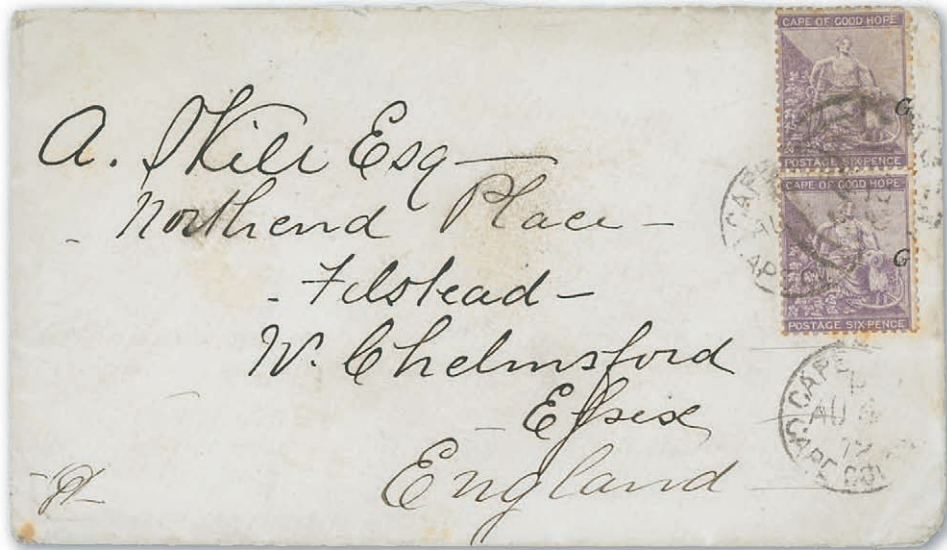 CAPE OF GOOD HOPE
G
POSTAGE SIX-PENCE
CAPE OF GOOD HOPE
G
POSTAGE SIX-PENCE
A. Skill Esq
Northend Place
Felstead
Nr. Chelmsford
Essex
England
CAPE
AU
CAPE COL